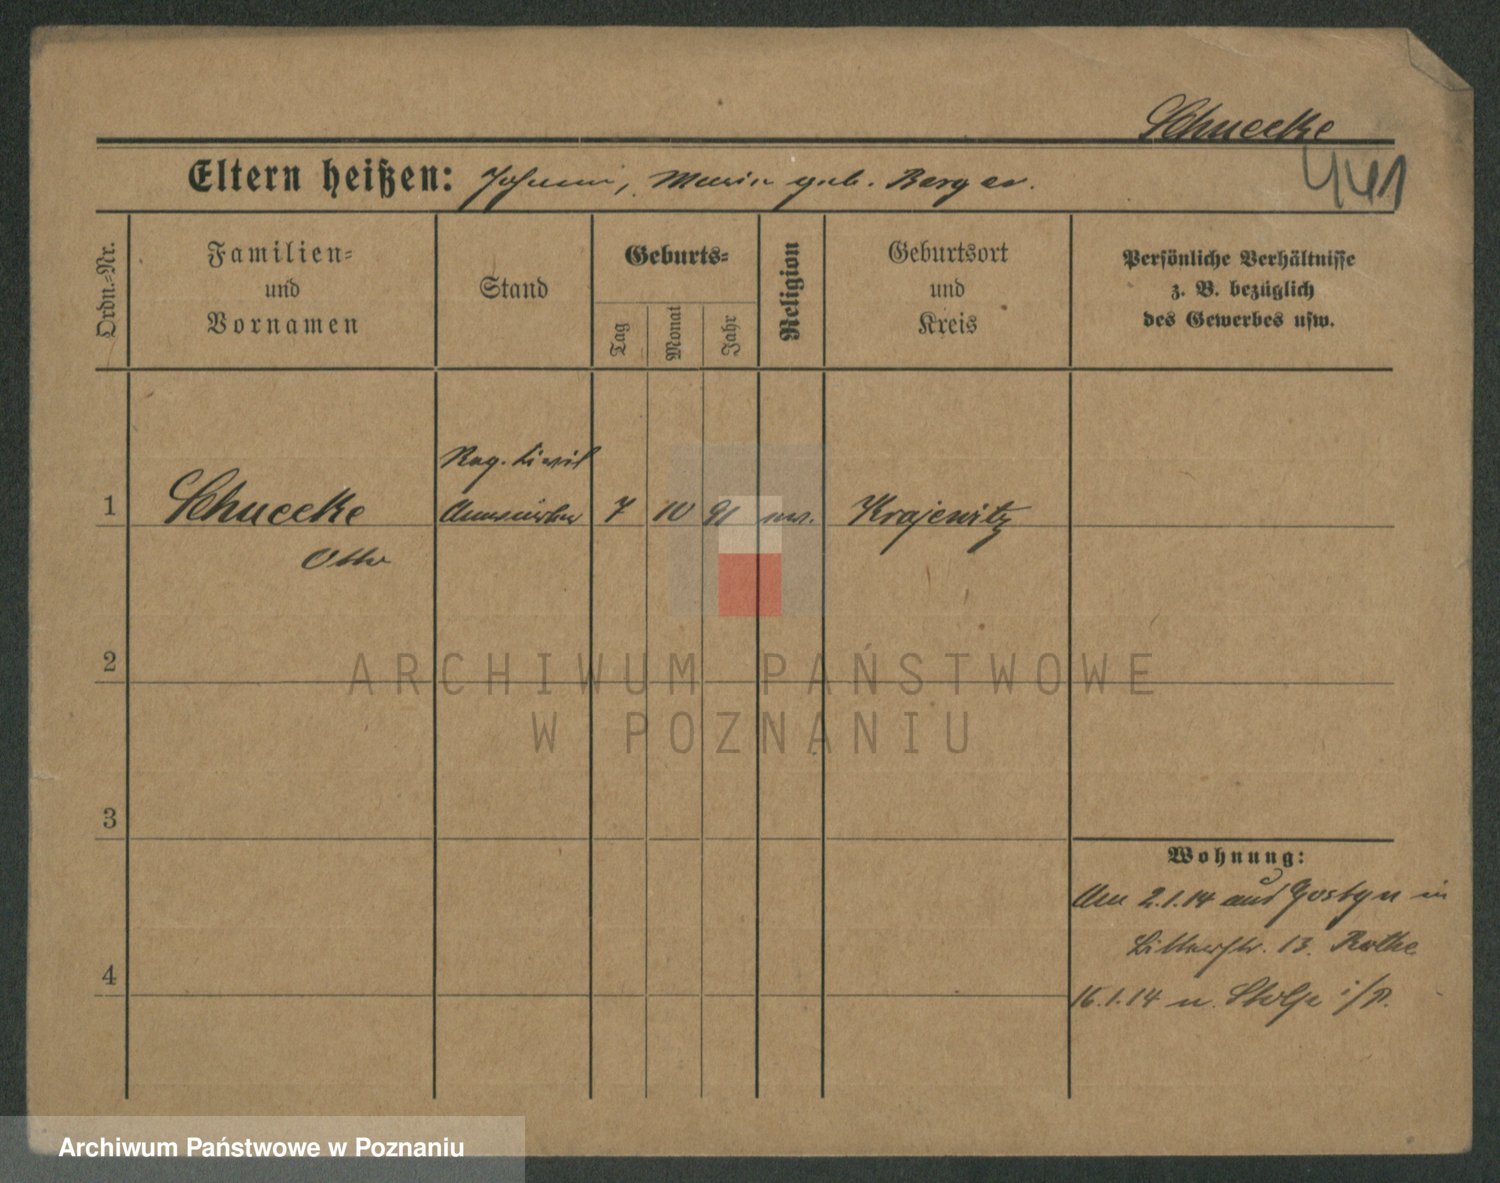 Schneeke
441
Eltern heißen: Johann, Maria geb. Berger.
Ordn.-Nr.
Familien-
und
Vornamen
Stand
Geburts-
Tag
Monat
Jahr
Religion
Geburtsort
und
Kreis
Persönliche Verhältnisse
z. B. bezüglich
des Gewerbes usw.
Reg. Zivil
1 Schneeke 7 10 91 ev. Krajewitz
Otto
2
ARCHIWUM PAŃSTWOWE
W POZNANIU
3
Wohnung:
Am 2.1.14 aus Gostyn in
13. Rothe
4
16.1.14 n. Stolp i/P.
Archiwum Państwowe w Poznaniu